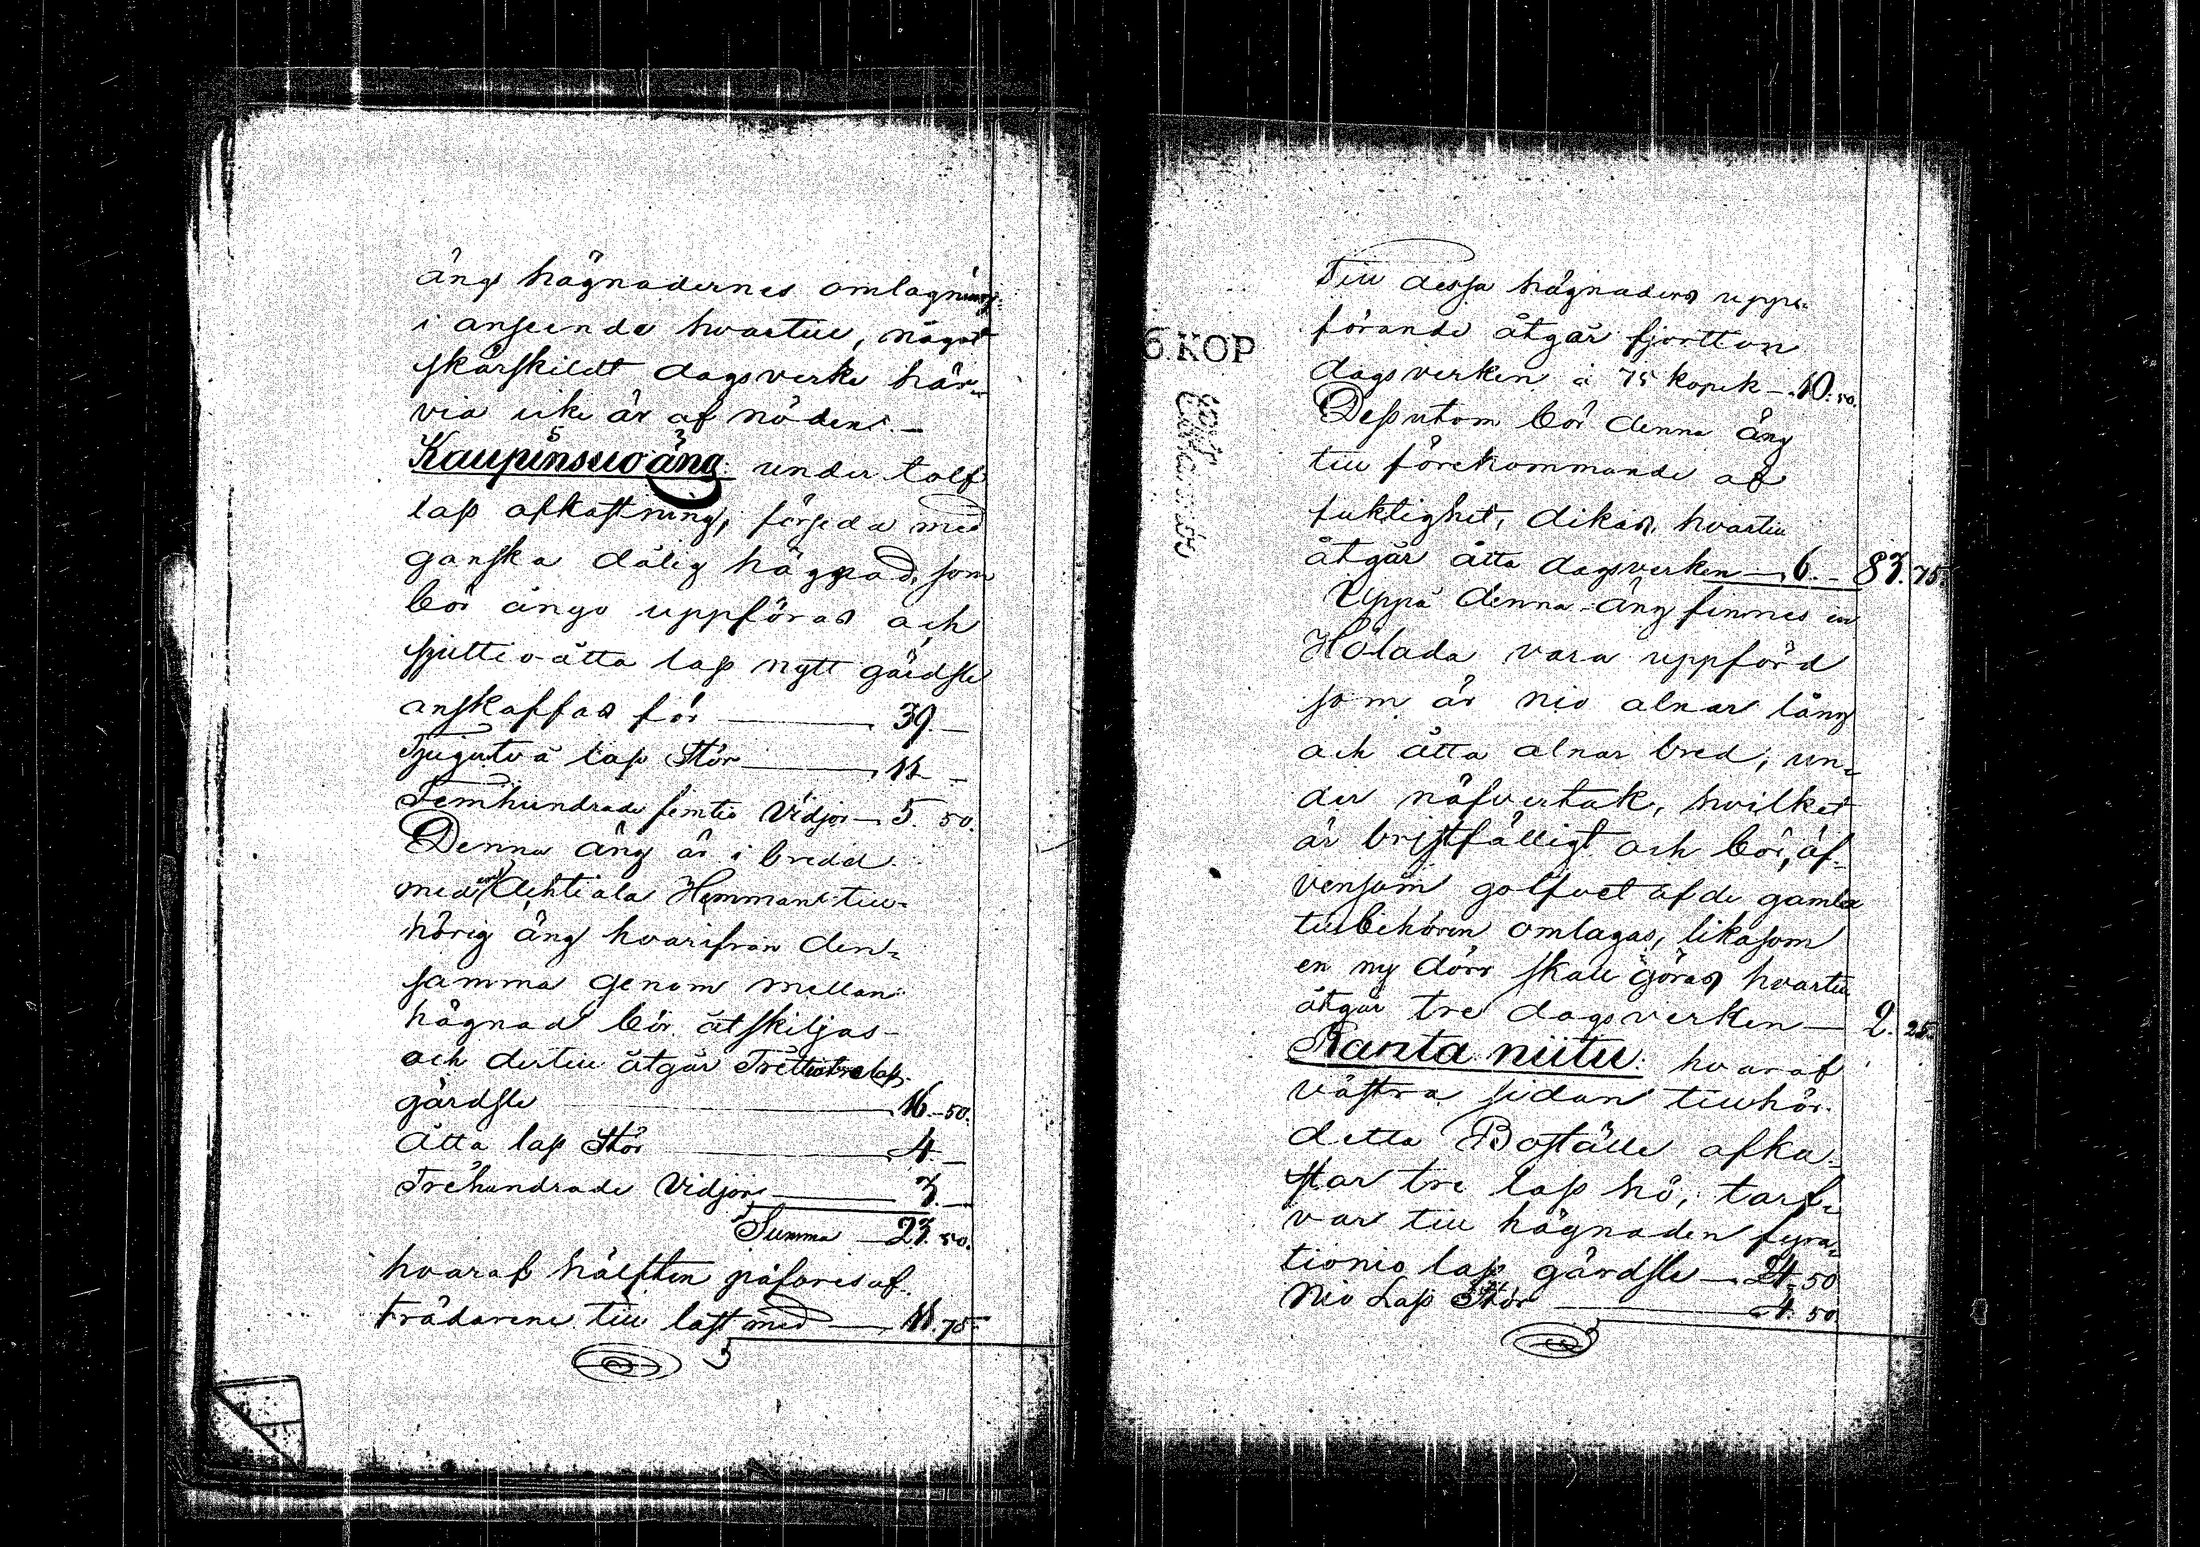 ängs hägnadernes omlagning,
i anseende hvartill, något
särskildt dagsverke här-
via icke är af nöden. —
Kaupinsuo äng. under tolf
lass afkastning, försedd med
ganska dålig hägnad, som
bör ånyo uppföras och
sjuttioåtta lass nytt gärdsle
anskaffas för — 39. —
Tjugutvå lass Stör — 11 —
Femhundrade femtio Vidjor — 5. 50.
Denna äng är i bredd
med Ahtiala Hemmans till-
hörig äng hvarifrån den-
samma genom mellan-
hägnad bör åtskiljas —
och dertill åtgår Trettiotre lass
gärdsle — 16. 50.
Åtta lass Stör — 4. —
Trehundrade Vidjor — 3. —
Summa — 23. 50.
hvaraf hälften påföres af-
trädarene till last med — 11. 75.
Till dessa hägnaders uppe-
förande åtgår fjortton
dagsverken à 75 kopek — 10. 50.
Dessutom bör denna äng
till förekommande af
fuktighet, dikas, hvartill
åtgår åtta dagsverken — 6. — 83. 75.
Uppå denna äng finnes en
Hölada vara uppförd
som är nio alnar lång
och åtta alnar bred, un-
der näfvertak, hvilket
är bristfälligt och bör, äf-
vensom golfvet af de gamla
tillbehören omlagas, likasom
en ny dörr skall göras hvartill
åtgår tre dagsverken — 2. 25.
Ranta niitu. hvaraf
västra sidan tillhör
detta Boställe afka-
star tre lass hö, tarf-
var till hägnaden fyra-
tionio lass gärdsle — 24. 50
Nio Lass Stör — 4. 50.
6. KOP